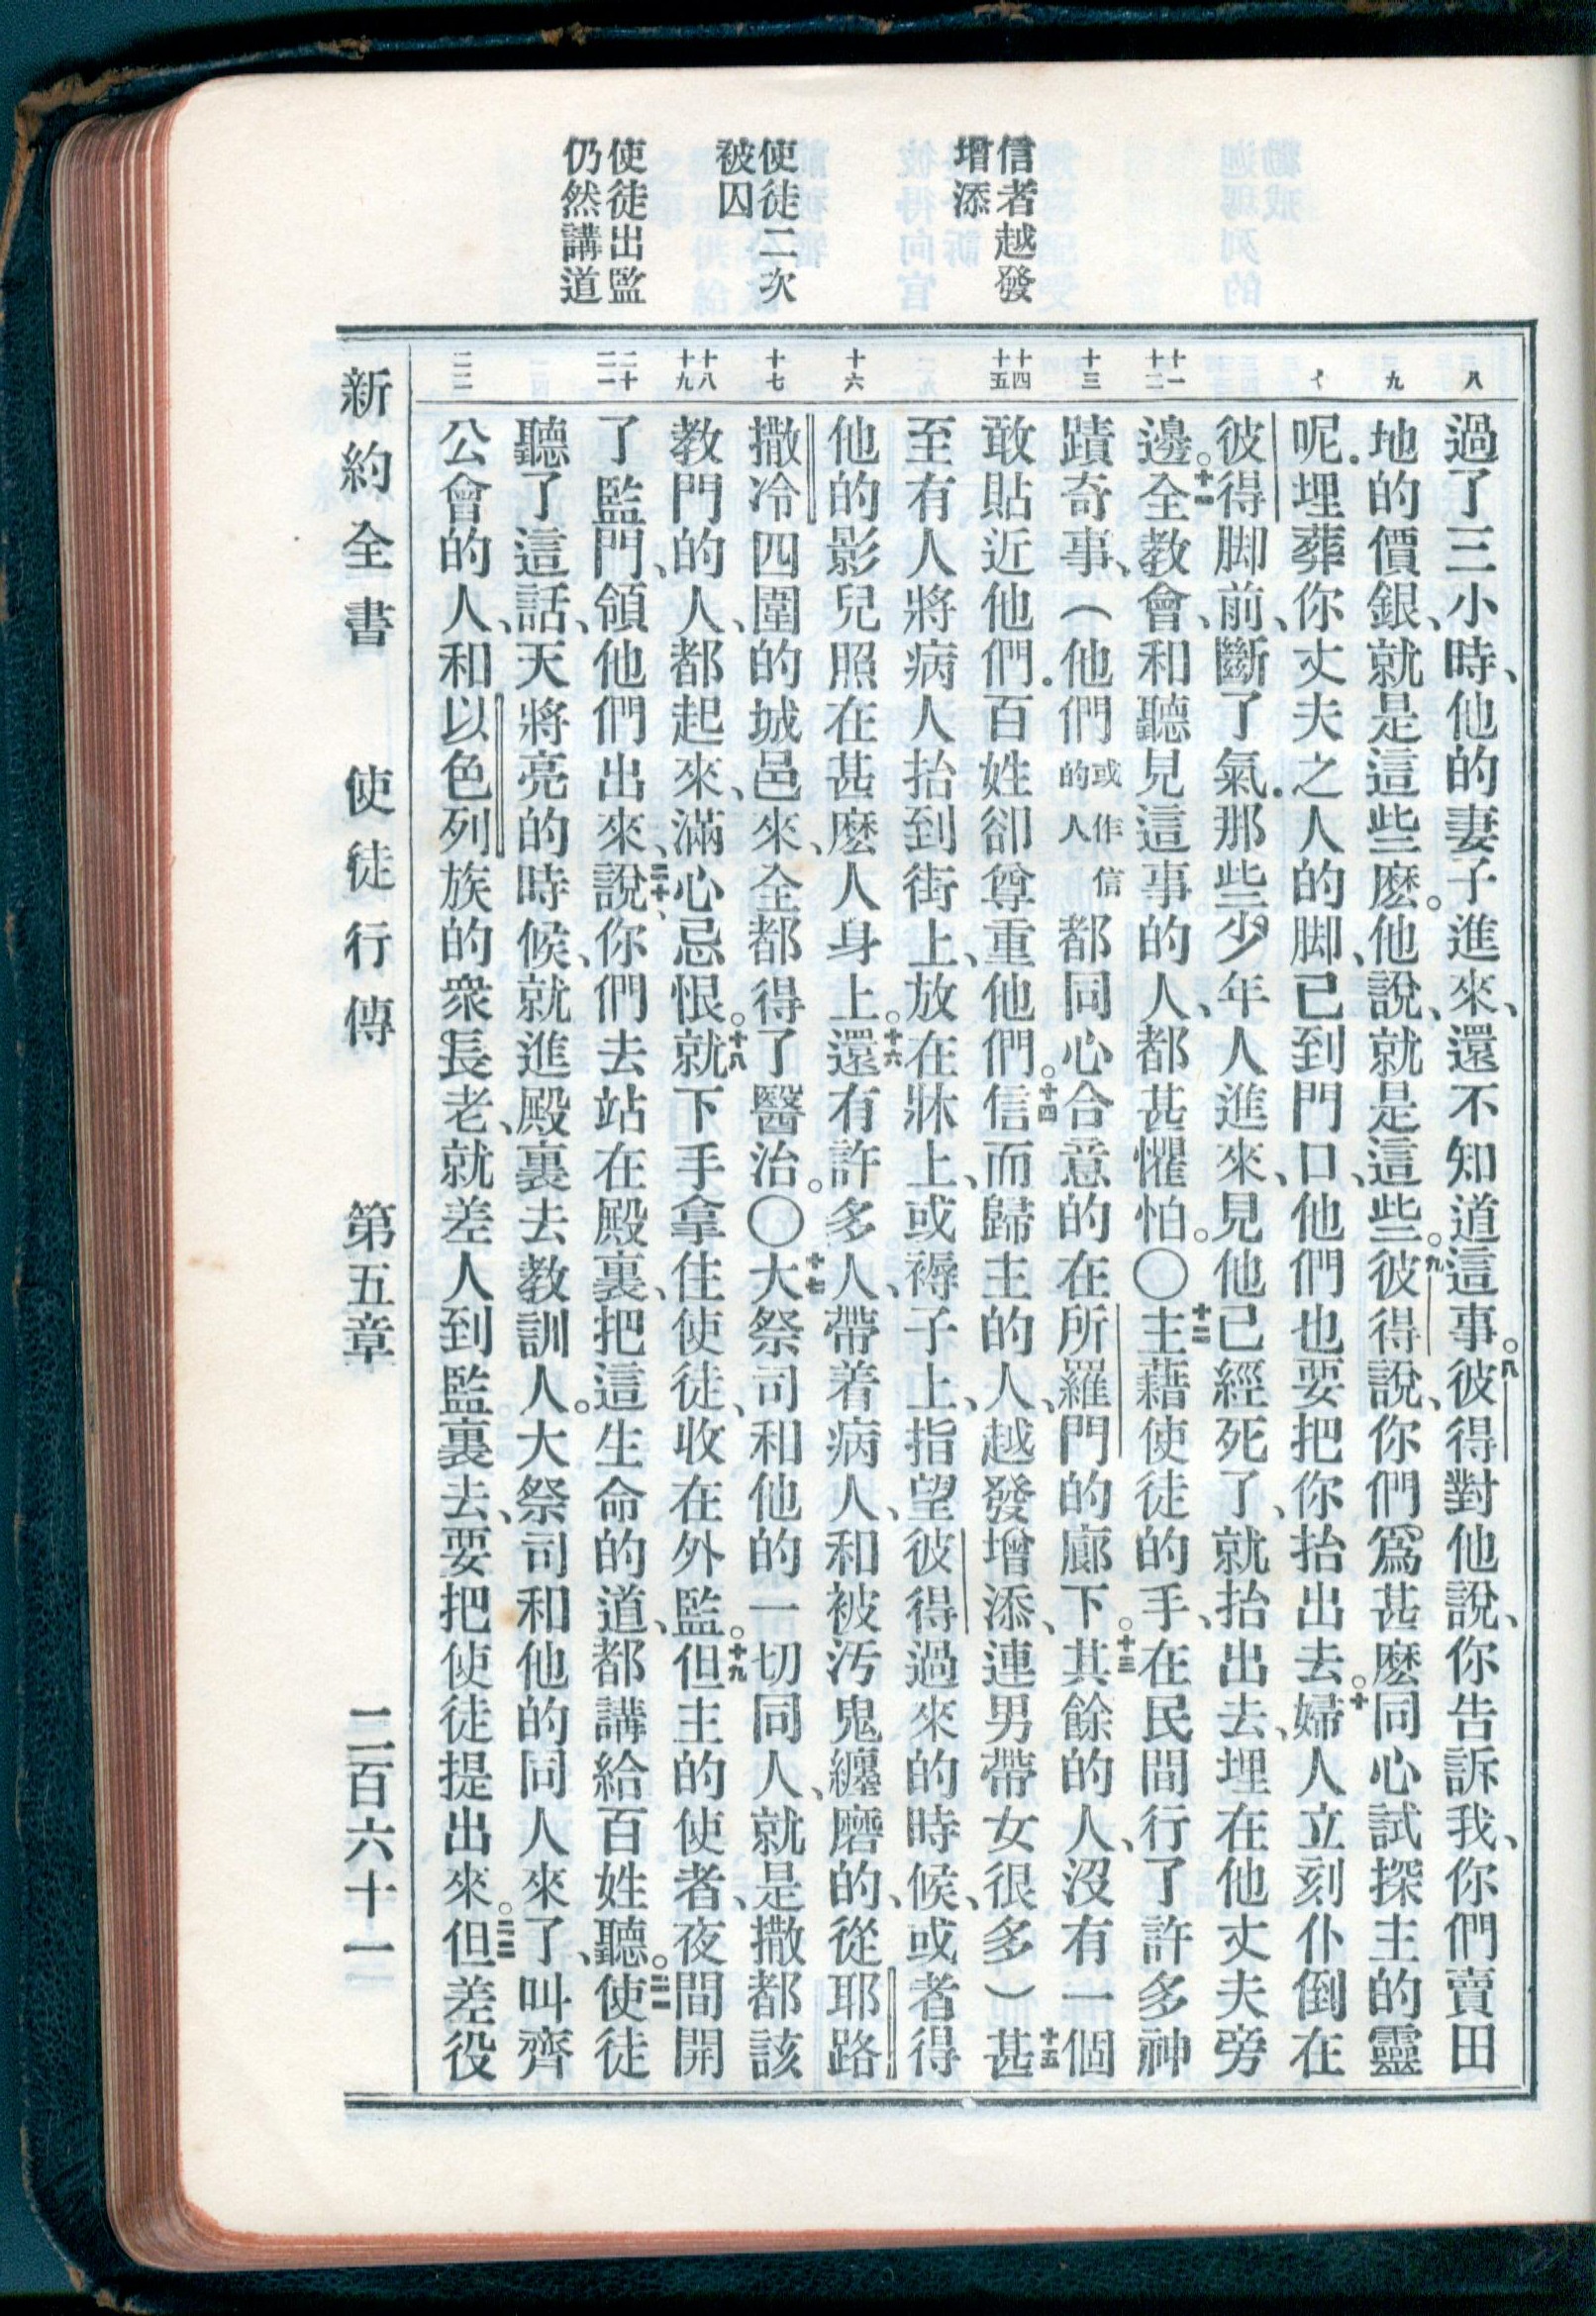 信者越發
增添
使徒二次
被囚
使徒出監
仍然講道
八
九
十
十一
十二
十三
十四
十五
十六
十七
十八
十九
二十
二一
二二
過了三小時、他的妻子進來、還不知道這事。八彼得對他說、你告訴我、你們賣田
地的價銀、就是這些麽。他說、就是這些。九彼得說、你們爲甚麽同心試探主的靈
呢．埋葬你丈夫之人的脚、已到門口、他們也要把你抬出去。十婦人立刻仆倒在
彼得脚前、斷了氣．那些少年人進來、見他已經死了、就抬出去、埋在他丈夫旁
邊。十一全教會、和聽見這事的人、都甚懼怕。〇十二主藉使徒的手、在民間行了許多神
蹟奇事、（他們或作信的人都同心合意的在所羅門的廊下。十三其餘的人、沒有一個
敢貼近他們．百姓卻尊重他們。十四信而歸主的人、越發增添、連男帶女很多）十五甚
至有人將病人抬到街上、放在牀上、或褥子上、指望彼得過來的時候、或者得
他的影兒照在甚麽人身上。十六還有許多人、帶着病人、和被汚鬼纏磨的、從耶路
撒冷四圍的城邑來、全都得了醫治。〇十七大祭司和他的一切同人、就是撒都該
教門的人、都起來、滿心忌恨。十八就下手拿住使徒、收在外監。十九但主的使者、夜間開
了監門、領他們出來、二十、說你們去站在殿裏、把這生命的道、都講給百姓聽。二一使徒
聽了這話、天將亮的時候、就進殿裏去教訓人。大祭司和他的同人來了、叫齊
公會的人、和以色列族的衆長老、就差人到監裏去、要把使徒提出來。二二但差役
新約全書 使徒行傳 第五章 二百六十一